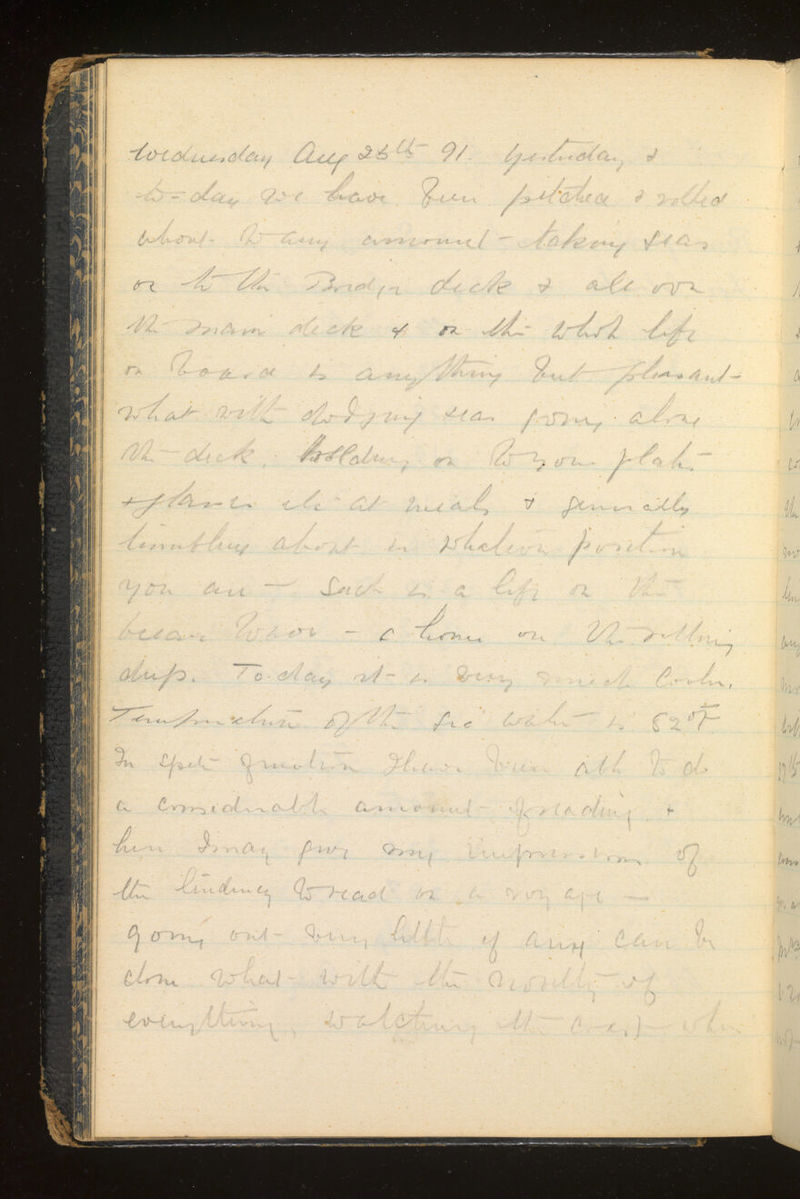 Wednesday Aug 26th 91. Yesterday &
to-day we have been pitched & rolled
about to any amount - taking seas
on to the Bridge deck & all over
the main deck & on the whole life
on board is anything but pleasant -
what with dodging seas going along
the deck, holding on to your plates
& glasses etc at meals & generally
tumbling about in whatever position
you are - Such is a life on the
ocean wave - a home on the rolling
deep. To-day it is very much cooler.
Temperature of the sea water is 82°F
In spite of motion I have been able to do
a considerable amount of reading &
here I may give my impressions of
the tendency to read on a voyage -
going out very little if any can be
done what with the novelty of
everything, watching the coast when